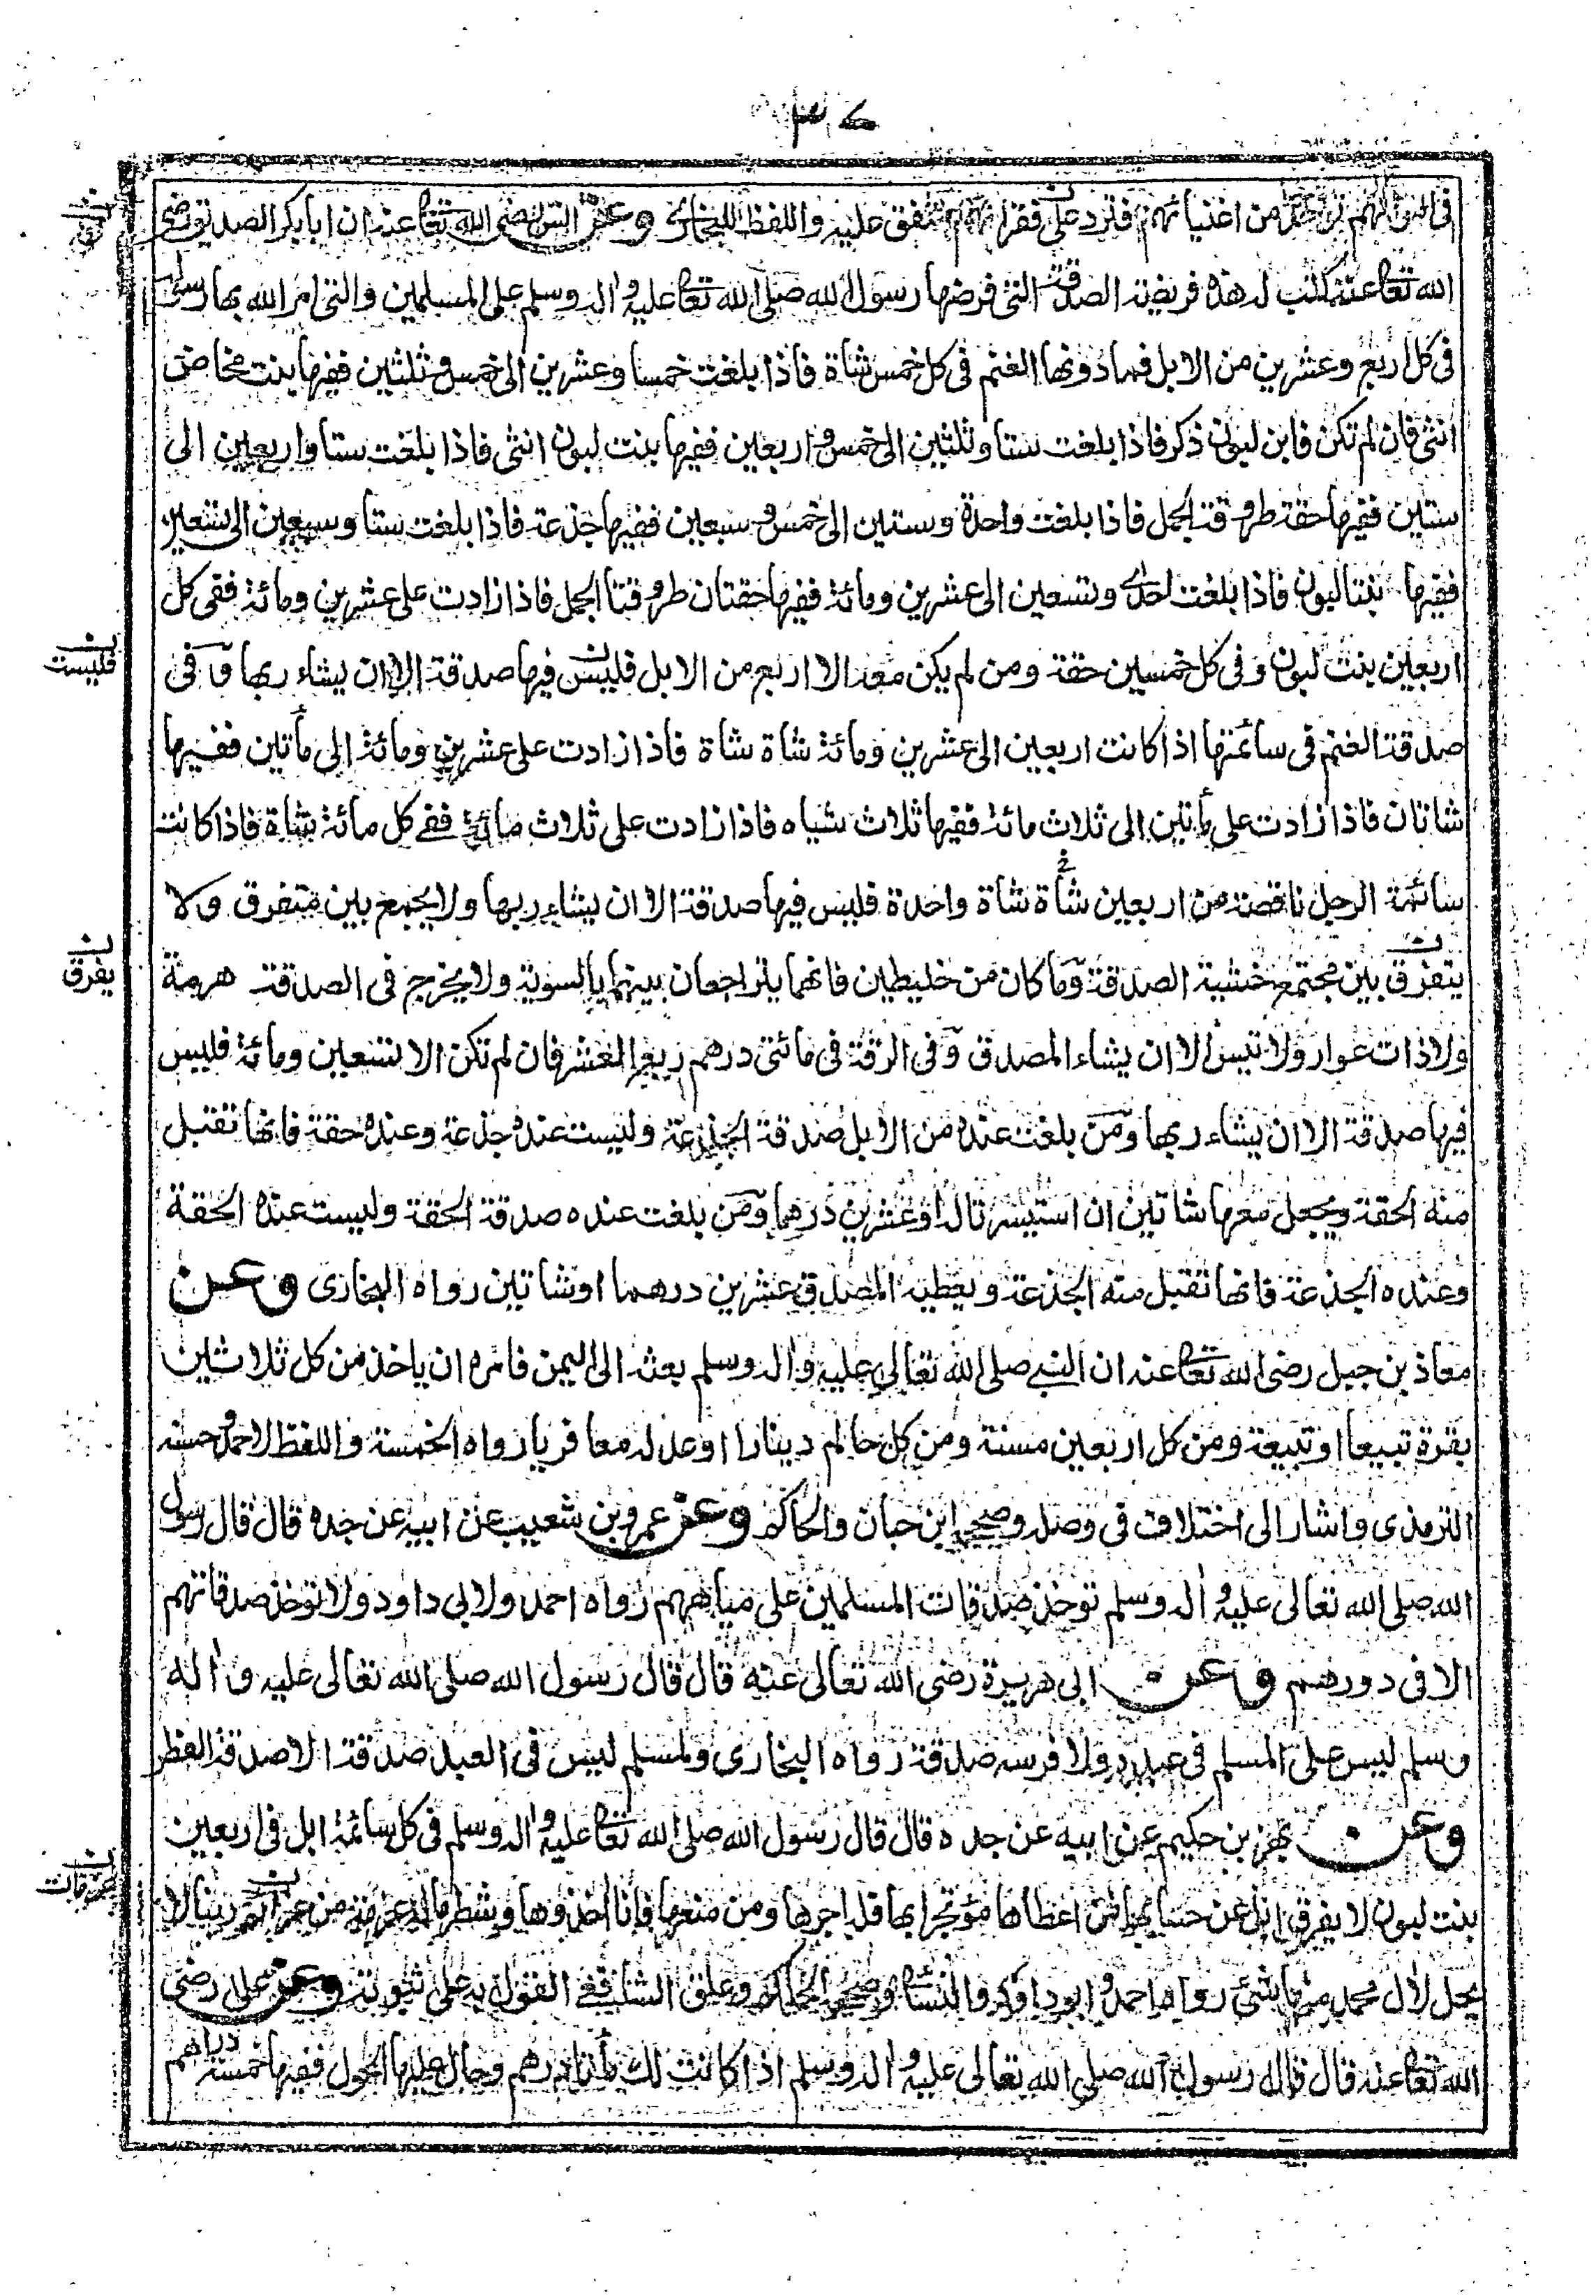 ٣٧
في اموالهم تؤخذ من اغنيائهم فترد على فقرائهم متفق عليه واللفظ للبخاري وعن انس رضى الله تعا عنه ان ابا بكر الصديق رضى
الله تعا عنه كتب له هذه فريضة الصدقة التى فرضها رسول الله صلى الله تعا عليه واله وسلم على المسلمين والتى امر الله بها رسوله
فى كل اربع وعشرين من الابل فما دونها الغنم فى كل خمس شاة فاذا بلغت خمسا وعشرين الى خمس وثلثين ففيها بنت مخاض
انثى فان لم تكن فابن لبون ذكر فاذا بلغت ستا وثلثين الى خمس واربعين ففيها بنت لبون انثى فاذا بلغت ستا واربعين الى
ستين ففيها حقة طروقة الجمل فاذا بلغت واحدة وستين الى خمس وسبعين ففيها جذعة فاذا بلغت ستا وسبعين الى تسعين
ففيها بنتا لبون فاذا بلغت احدى وتسعين الى عشرين ومائة ففيها حقتان طروقتا الجمل فاذا زادت على عشرين ومائة ففى كل
اربعين بنت لبون وفى كل خمسين حقة ومن لم يكن معه الا اربع من الابل فليس فيها صدقة الا ان يشاء ربها وفى
فليست
صدقة الغنم فى سائمتها اذا كانت اربعين الى عشرين ومائة شاة شاة فاذا زادت على عشرين ومائة الى مأتين ففيها
شاتان فاذا زادت على مأتين الى ثلاث مائة ففيها ثلاث شياه فاذا زادت على ثلاث مائة ففى كل مائة شاة فاذا كانت
سائمة الرجل ناقصة من اربعين شاة شاة واحدة فليس فيها صدقة الا ان يشاء ربها ولا يجمع بين متفرق ولا
يتفرق بين مجتمع خشية الصدقة وما كان من خليطين فانهما يتراجعان بينهما بالسوية ولا يخرج فى الصدقة هرمة
يفرق
ولا ذات عوار ولا تيس الا ان يشاء المصدق وفى الرقة فى مائتى درهم ربع العشر فان لم تكن الا تسعين ومائة فليس
فيها صدقة الا ان يشاء ربها ومن بلغت عنده من الابل صدقة الجذعة وليست عنده جذعة وعنده حقة فانها تقبل
منه الحقة ويجعل معها شاتين ان استيسرتا له او عشرين درهما ومن بلغت عنده صدقة الحقة وليست عنده الحقة
وعنده الجذعة فانها تقبل منه الجذعة ويعطيه المصدق عشرين درهما او شاتين رواه البخارى وعن
معاذ بن جبل رضى الله تعا عنه ان النبى صلى الله تعالى عليه واله وسلم بعثه الى اليمن فامره ان ياخذ من كل ثلاثين
بقرة تبيعا او تبيعة ومن كل اربعين مسنة ومن كل حالم دينارا او عدله معافريا رواه الخمسة واللفظ لاحمد وحسنه
الترمذى واشار الى اختلاف فى وصله وصححه ابن حبان والحاكم وعن عمرو بن شعيب عن ابيه عن جده قال قال رسول
الله صلى الله تعالى عليه واله وسلم توخذ صدقات المسلمين على مياههم رواه احمد ولابى داود ولا توخذ صدقاتهم
الا فى دورهم وعن ابى هريرة رضى الله تعالى عنه قال قال رسول الله صلى الله تعالى عليه واله
وسلم ليس على المسلم فى عبده ولا فرسه صدقة رواه البخارى ولمسلم ليس فى العبد صدقة الا صدقة الفطر
وعن بهز بن حكيم عن ابيه عن جده قال قال رسول الله صلى الله تعا عليه واله وسلم فى كل سائمة ابل فى اربعين
بنت لبون لا يفرق ابل عن حسابها من اعطاها مؤتجرا بها فله اجرها ومن منعها فانا اخذوها وشطر ماله عزمة من عزمات ربنا لا
يحل لال محمد منها شئ رواه احمد وابو داود والنسائى وصححه الحاكم وعلق الشافعى القول به على ثبوته وعن على رضى
الله تعا عنه قال قال رسول الله صلى الله تعالى عليه واله وسلم اذا كانت لك مأتا درهم وحال عليها الحول ففيها خمسة دراهم